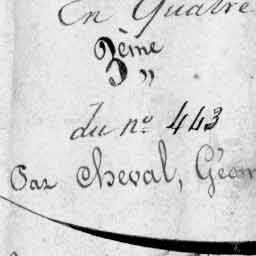 En Quatre
3ème
"
du n.º 443
Par Cheval, Géom